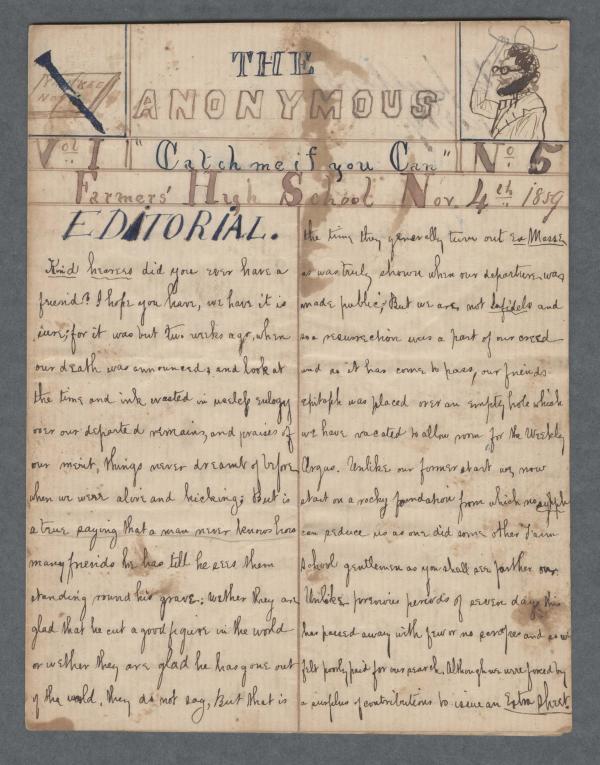 THE
ANONYMOUS
Vol I "Catch me if you Can" No 5
Farmers' High School Nov. 4th 1859
EDITORIAL.
Kind hearers did you ever have a
friend? I hope you have, we have it is
sure; for it was but two weeks ago, when
our death was announced; and look at
the time and ink wasted in useless eulogy
over our departed remains, and praises of
our merit, things never dreamt of before
when we were alive and kicking; But is
a true saying that a man never knows how
many freinds he has till he sees them
standing round his grave; wether they are
glad that he cut a good figure in the world
or wether they are glad he has gone out
of the world, they do not say, But that is
the time they generally turn out En Masse,
as was truly shown when our departure was
made public; But we are not infidels and
as a resurrection was a part of our creed
and as it has come to pass, our friends
epitaph was placed over an empty hole which
we have vacated to allow room for the Weekly
Argus. Unlike our former start we now
start on a rocky foundation from which no
can seduce us as one did some other Farm
School gentlemen as you shall see farther on.
Unlike previous periods of seven days this
has passed away with few or no scrapes and so we
felt poorly paid for our search, Although we were forced by
a surplus of contributions to issue an Extra Sheet